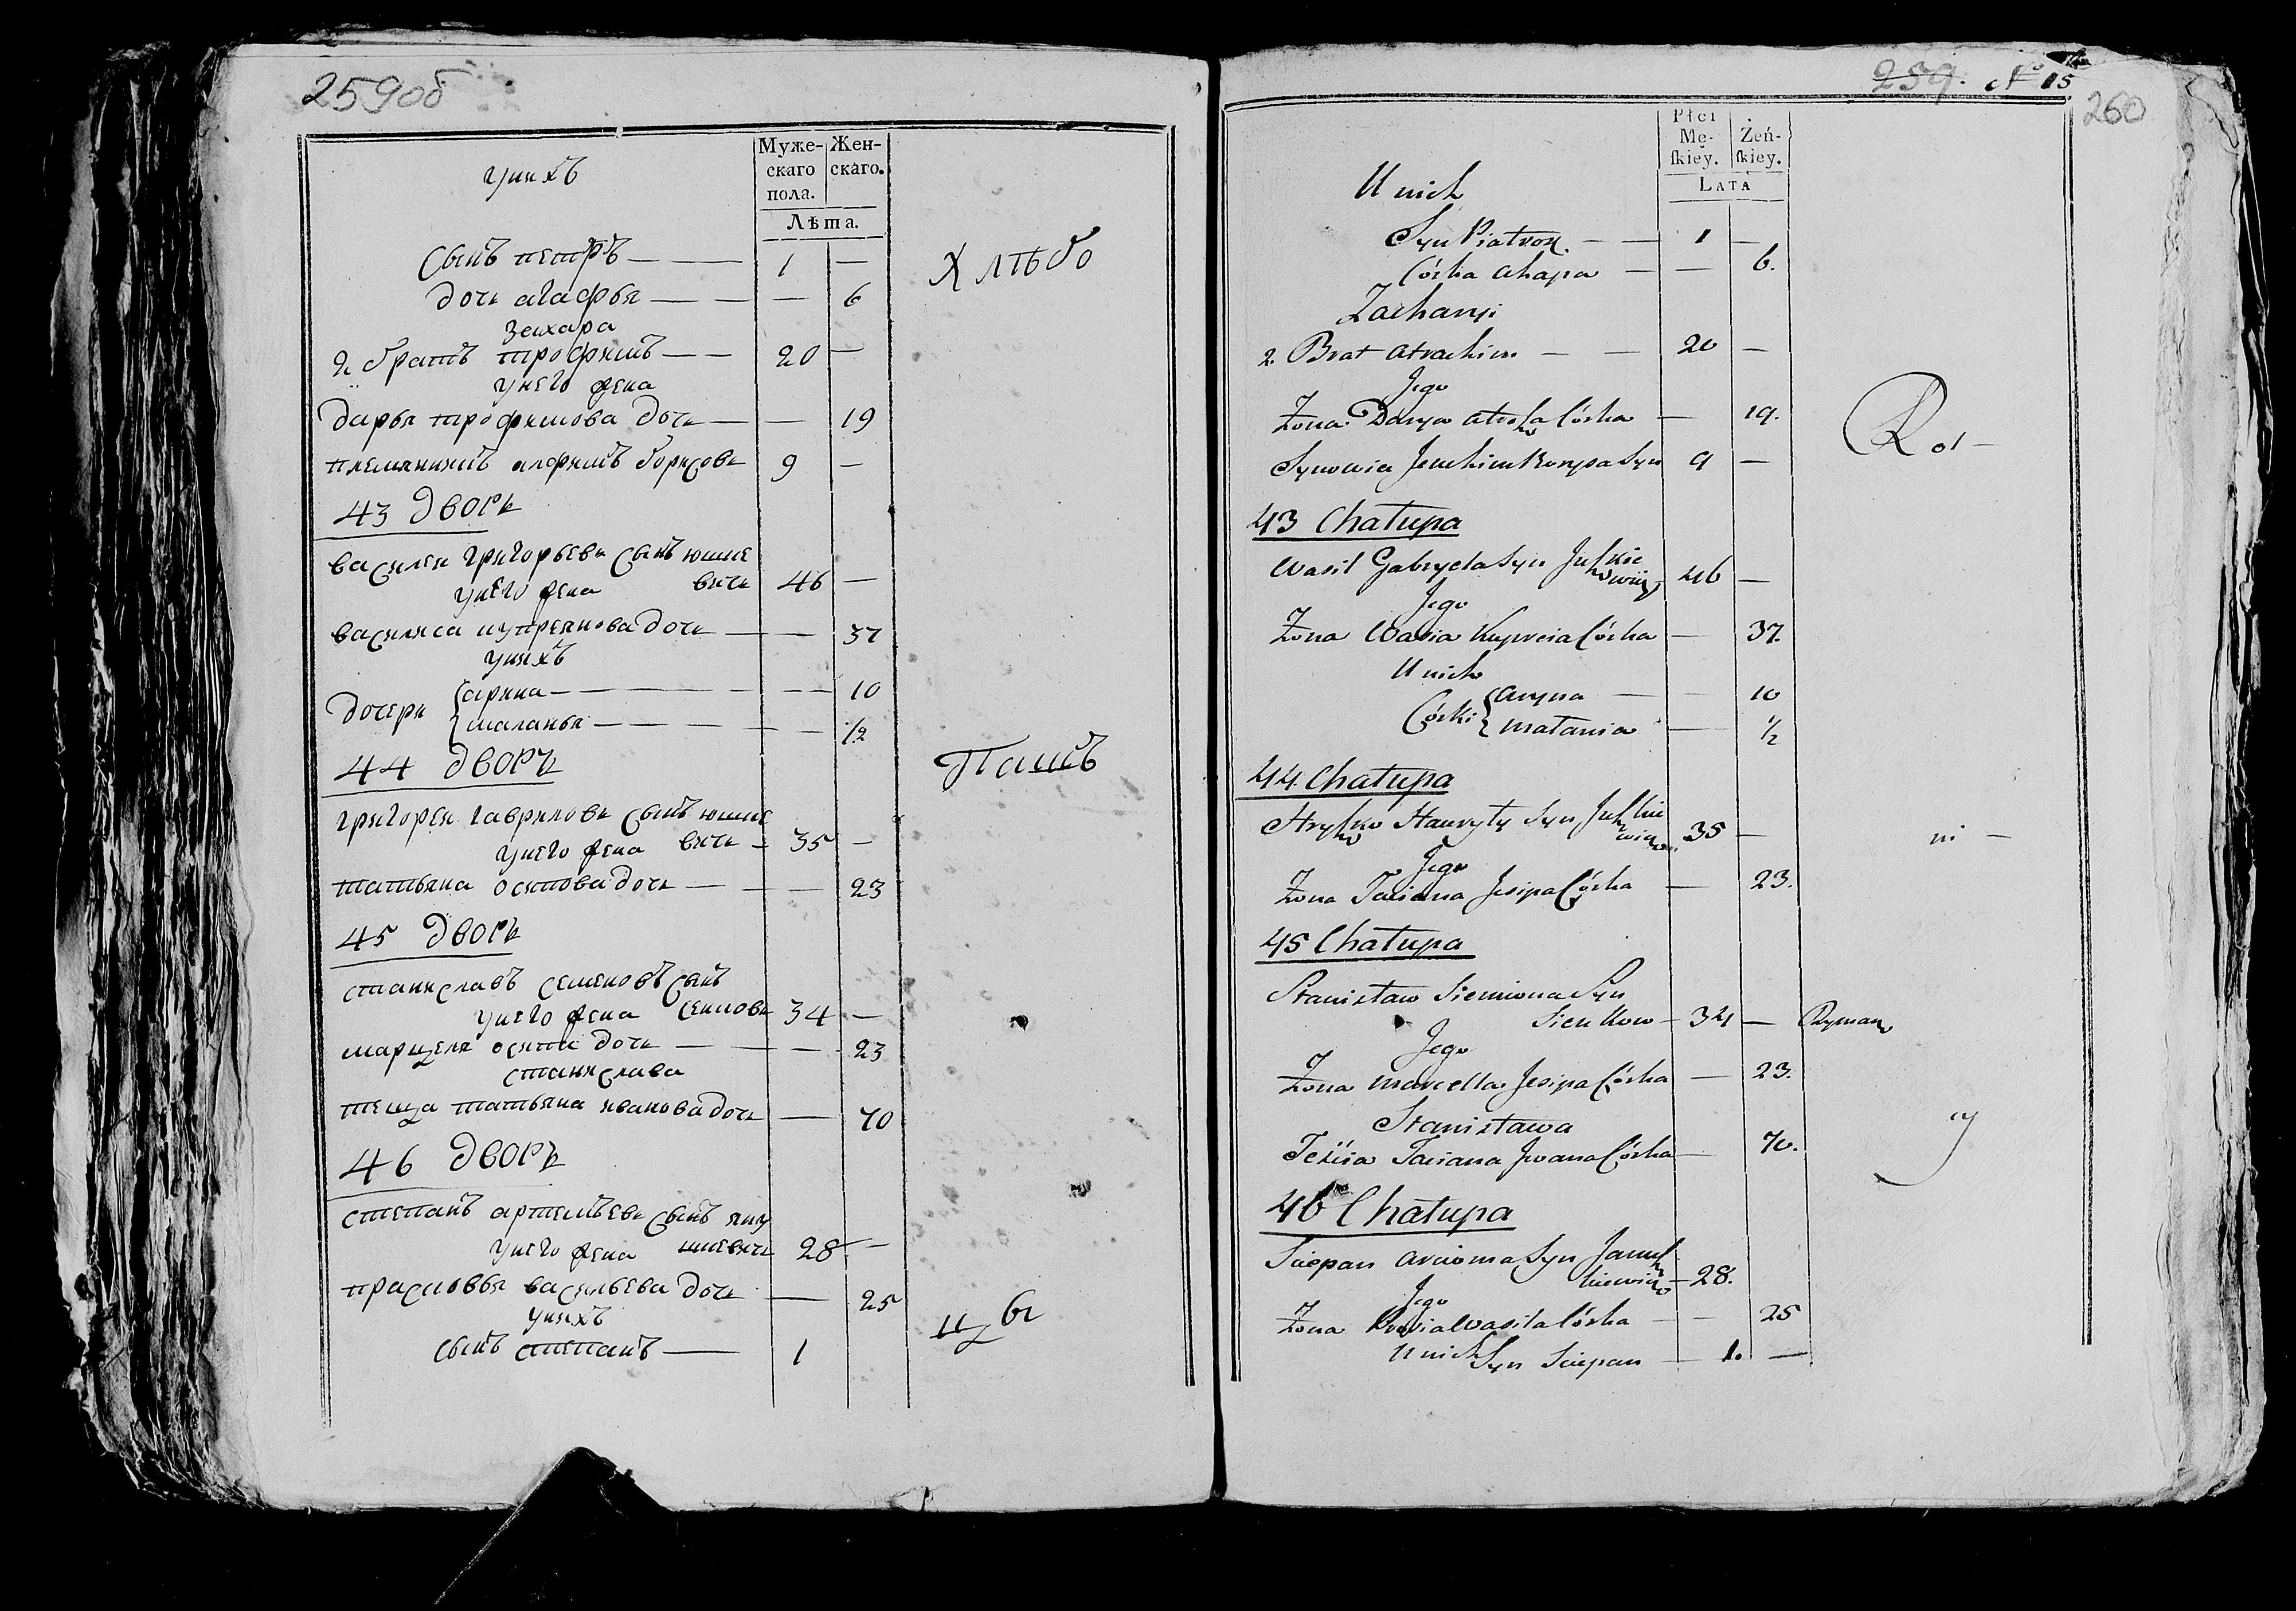 259об
Муже- Жен-
скаго скаго.
пола.
Лѣта.
унихъ
Сынъ петръ — 1 —
дочь агафья — — 6
захара
2 братъ трофимъ — 20 —
унего жена
дарья трофимова дочь — — 19
племянникъ алфимъ борисовъ 9 —
Хлѣбо
43 дворъ
василей григорьевъ сынъ юшке
унего жена вичь 46 —
василиса купреянова дочь — — 37
унихъ
дочери { арина — — 10
{ маланья — — 1/2
44 дворъ
Пашъ
григорей гавриловъ сынъ юшке
унего жена вичь — 35 —
татьяна осипова дочь — — 23
45 дворъ
станиславъ семеновъ сынъ
унего жена сенковъ 34 —
марцеля осипа дочь — — 23
станислава
теща татьяна иванова дочь — 70
46 дворъ
степанъ артемьевъ сынъ яну
унего жена шкевичь 28 —
прасковья васильева дочь — 25
унихъ
сынъ степанъ — 1
цы
259. N 15
260
Płci
Mę- Żeń-
ſkiey. ſkiey.
LATA
U nich
Syn Piatrok — 1 —
Córka Ahapa — — 6.
Zacharyi
2. Brat Atrachim — 20 —
Jego
Żona Darya Córka — 19.
Synowiec Borysa Syn 9 —
Rol-
43 Chałupa
Wasil Gabryela Syn Juszkie
wicz 46 —
Jego
Żona Wasia Kupreia Córka — 37.
U nich
Córki { Aryna — — 10
{ Małania — 1/2
44 Chałupa
Hryszko Hauryły Syn Juszkie
wicz 35 —
ni —
Jego
Żona Taciana Jesipa Córka — 23.
45 Chałupa
Stanisław Siemiona Syn
Sienkow — 34 — Rzyman
Jego
Żona Marcella Jesipa Córka — 23.
Stanisława
Teścia Taciana Jwana Córka — 70.
cy
46 Chałupa
Sciepan Arcioma Syn Janusz
kiewicz — 28.
Jego
Żona Wasila Córka — — 25
U nich Syn Sciepan — 1. —